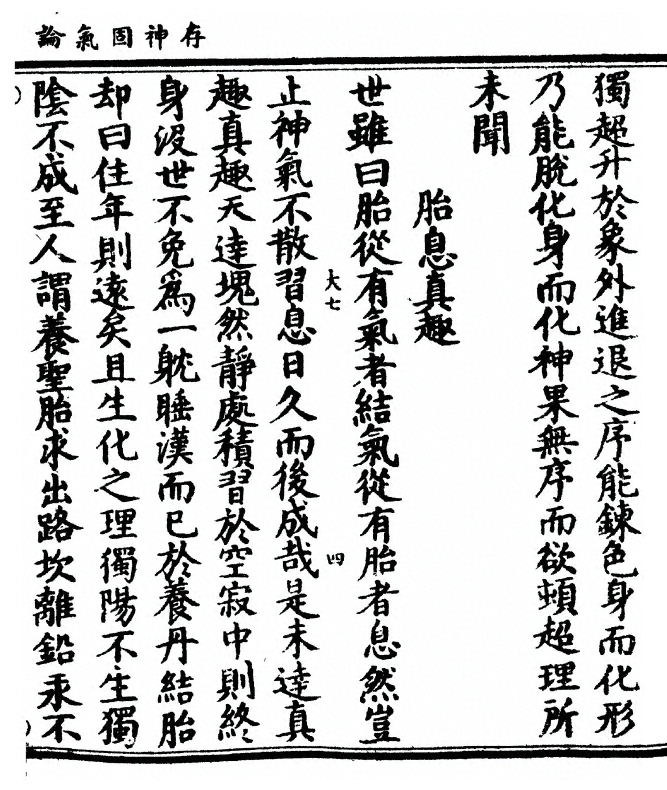 存神固氣論
獨超升於象外進退之序能鍊色身而化形
乃能脫化身而化神果無序而欲頓超理所
未聞
胎息真趣
世雖曰胎從有氣者結氣從有胎者息然豈
大七
四
止神氣不散習息日久而後成哉是未達真
趣真趣天達塊然靜處積習於空寂中則終
身沒世不免為一躭睡漢而已於養丹結胎
却曰住年則遠矣且生化之理獨陽不生獨
陰不成至人謂養聖胎求出路坎離鉛汞不